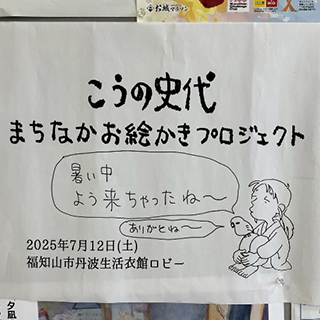 お城
こうの史代
まちなかお絵かきプロジェクト
暑い中
よう来ちゃったね〜
ありがとね〜
2025年7月12日(土)
福知山市丹波生活衣館ロビー
夕凪